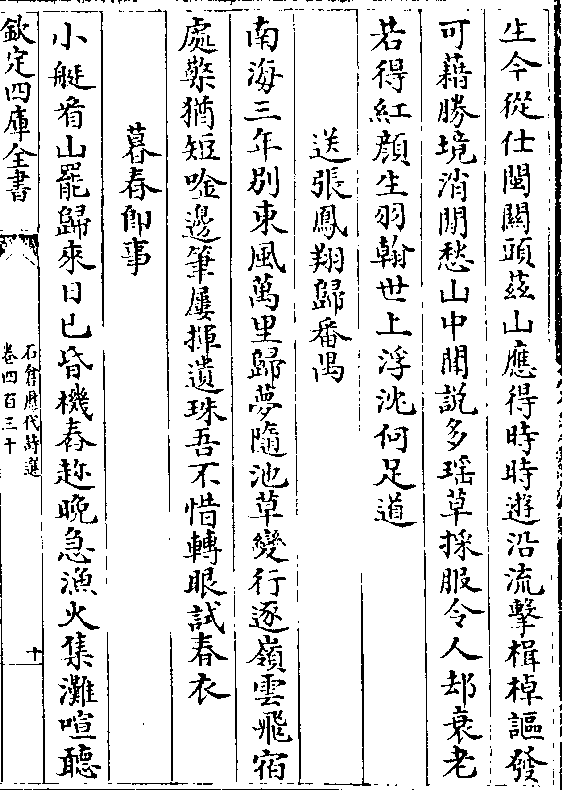 生今從仕閩關頭茲山應得時時遊沿流擊楫棹謳發
可藉勝境消閒愁山中聞說多瑶草採服令人却衰老
若得紅顔生羽翰世上浮沈何足道
送張鳳翔歸番禺
南海三年别東風萬里歸夢隨池草變行逐嶺雲飛宿
處檠猶短唫邊筆屢揮遺珠吾不惜轉眼試春衣
暮春即事
小艇看山罷歸來日已昏機舂趂晚急漁火集灘喧聽
欽定四庫全書
石倉歴代詩選
卷四百三十
十